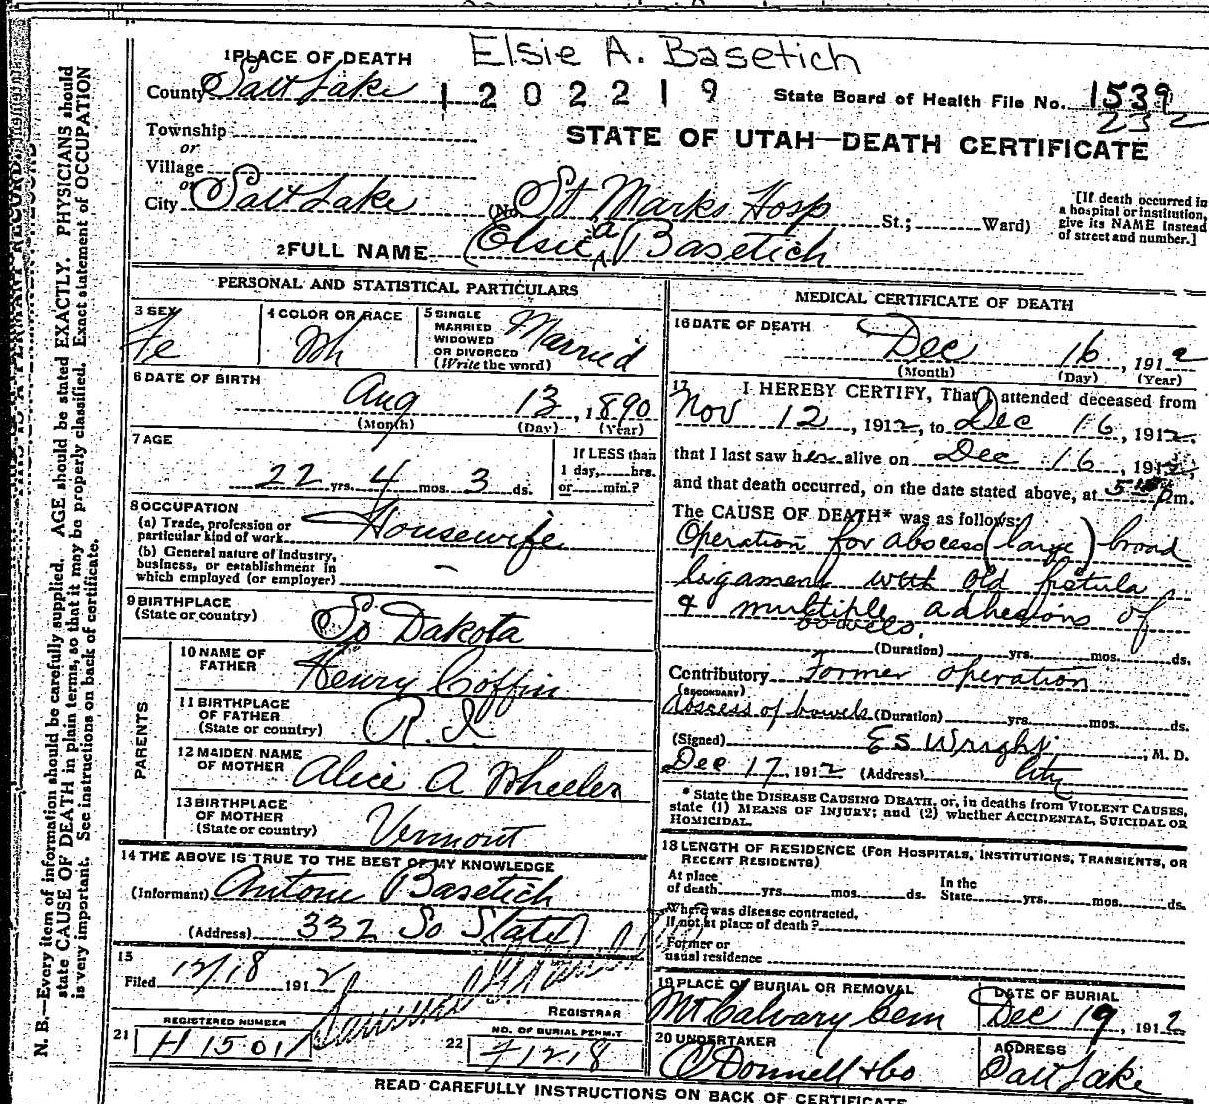 Elsie A. Basetich
1 PLACE OF DEATH
County Salt Lake 1202219 State Board of Health File No. 1539
232
Township
or
Village
or
City Salt Lake (No. St Marks Hosp St.; Ward)
[If death occurred in a hospital or institution, give its NAME instead of street and number.]
STATE OF UTAH—DEATH CERTIFICATE
2 FULL NAME Elsie A Basetich
a
PERSONAL AND STATISTICAL PARTICULARS
3 SEX
Fe
4 COLOR OR RACE
Wh
5 SINGLE
MARRIED
WIDOWED
OR DIVORCED
(Write the word)
Married
6 DATE OF BIRTH
Aug 13, 1890
(Month) (Day) (Year)
7 AGE
22 yrs. 4 mos. 3 ds.
If LESS than
1 day, hrs.
or min.?
8 OCCUPATION
(a) Trade, profession or
particular kind of work Housewife
(b) General nature of Industry,
business, or establishment in
which employed (or employer) –
9 BIRTHPLACE
(State or country)
So Dakota
PARENTS
10 NAME OF
FATHER
Henry Coffin
11 BIRTHPLACE
OF FATHER
(State or country)
R.I.
12 MAIDEN NAME
OF MOTHER
Alice A Wheeler
13 BIRTHPLACE
OF MOTHER
(State or country)
Vermont
14 THE ABOVE IS TRUE TO THE BEST OF MY KNOWLEDGE
(Informant) Antone Basetich
(Address) 332 So State
15
Filed 12/18 1912
REGISTRAR
21 REGISTERED NUMBER
H 1501
22 NO. OF BURIAL PERMIT
F1218
MEDICAL CERTIFICATE OF DEATH
16 DATE OF DEATH
Dec 16, 1912
(Month) (Day) (Year)
17 I HEREBY CERTIFY, That I attended deceased from
Nov 12, 1912, to Dec 16, 1912.
that I last saw her alive on Dec 16, 1912,
and that death occurred, on the date stated above, at pm.
The CAUSE OF DEATH* was as follows:
Operation for abscess (large) broad
ligament with old fistula
& multiple adhesions of
bowels.
(Duration) yrs. mos. ds.
Contributory Former operation
(SECONDARY)
abscess of bowels (Duration) yrs. mos. ds.
(Signed) ES Wright, M. D.
Dec 17, 1912 (Address) City
* State the DISEASE CAUSING DEATH, or, in deaths from VIOLENT CAUSES,
state (1) MEANS OF INJURY; and (2) whether ACCIDENTAL, SUICIDAL OR
HOMICIDAL.
18 LENGTH OF RESIDENCE (FOR HOSPITALS, INSTITUTIONS, TRANSIENTS, OR
RECENT RESIDENTS)
At place
of death yrs. mos. ds.
In the
State yrs. mos. ds.
Where was disease contracted,
if not at place of death?
Former or
usual residence
19 PLACE OF BURIAL OR REMOVAL
Mt Calvary Cem
DATE OF BURIAL
Dec 19, 1912
20 UNDERTAKER
O'Donnell & Co
ADDRESS
Salt Lake
READ CAREFULLY INSTRUCTIONS ON BACK OF CERTIFICATE
N. B.—Every item of information should be carefully supplied. AGE should be stated EXACTLY. PHYSICIANS should
state CAUSE OF DEATH in plain terms, so that it may be properly classified. Exact statement of OCCUPATION
is very important. See instructions on back of certificate.